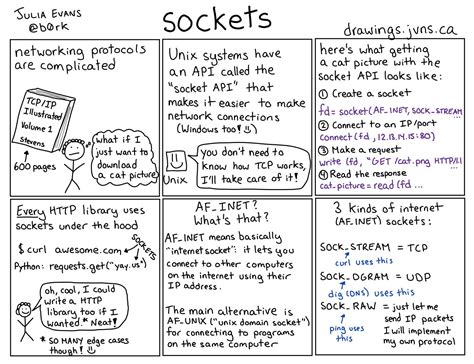 JULIA EVANS
@b0rk
sockets
drawings.jvns.ca
networking protocols
are complicated
TCP/IP
Illustrated
Volume 1
Stevens
600 pages
what if I
just want to
download
a cat picture
Unix systems have
an API called the
"socket API" that
makes it easier to make
network connections
(Windows too!)
you don't need to
know how TCP works,
I'll take care of it!
Unix
here's what getting
a cat picture with the
socket API looks like:
① Create a socket
fd = socket(AF_INET, SOCK_STREAM
② Connect to an IP/port
connect (fd, 12.13.14.15:80)
③ Make a request
write (fd, "GET /cat.png HTTP/1.1
④ Read the response
cat_picture = read (fd ...
Every HTTP library uses
sockets under the hood
$ curl awesome.com
SOCKETS
Python: requests.get("yay.us")
oh, cool, I could
write a HTTP
library too if I
wanted.* Neat!
* SO MANY edge cases
though!
AF_INET?
What's that?
AF_INET means basically
"internet socket": it lets you
connect to other computers
on the internet using their
IP address.
The main alternative is
AF_UNIX ("unix domain socket")
for connecting to programs
on the same computer
3 kinds of internet
(AF_INET) sockets:
SOCK_STREAM = TCP
curl uses this
SOCK_DGRAM = UDP
dig (DNS) uses this
SOCK_RAW = just let me
send IP packets
ping uses this
I will implement
my own protocol